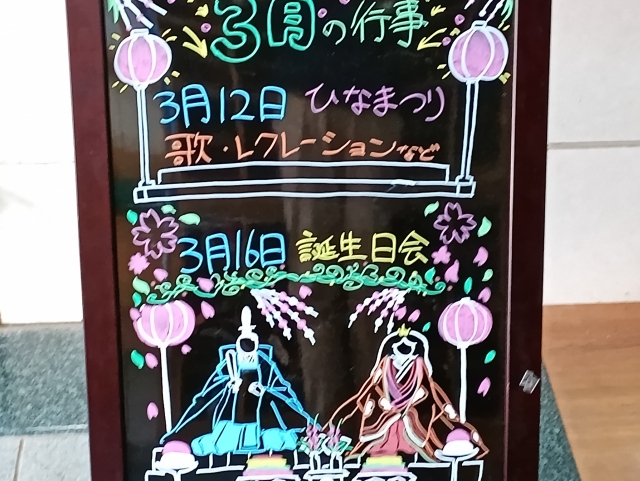 3月の行事
3月12日 ひなまつり
歌・レクレーションなど
3月16日 誕生日会